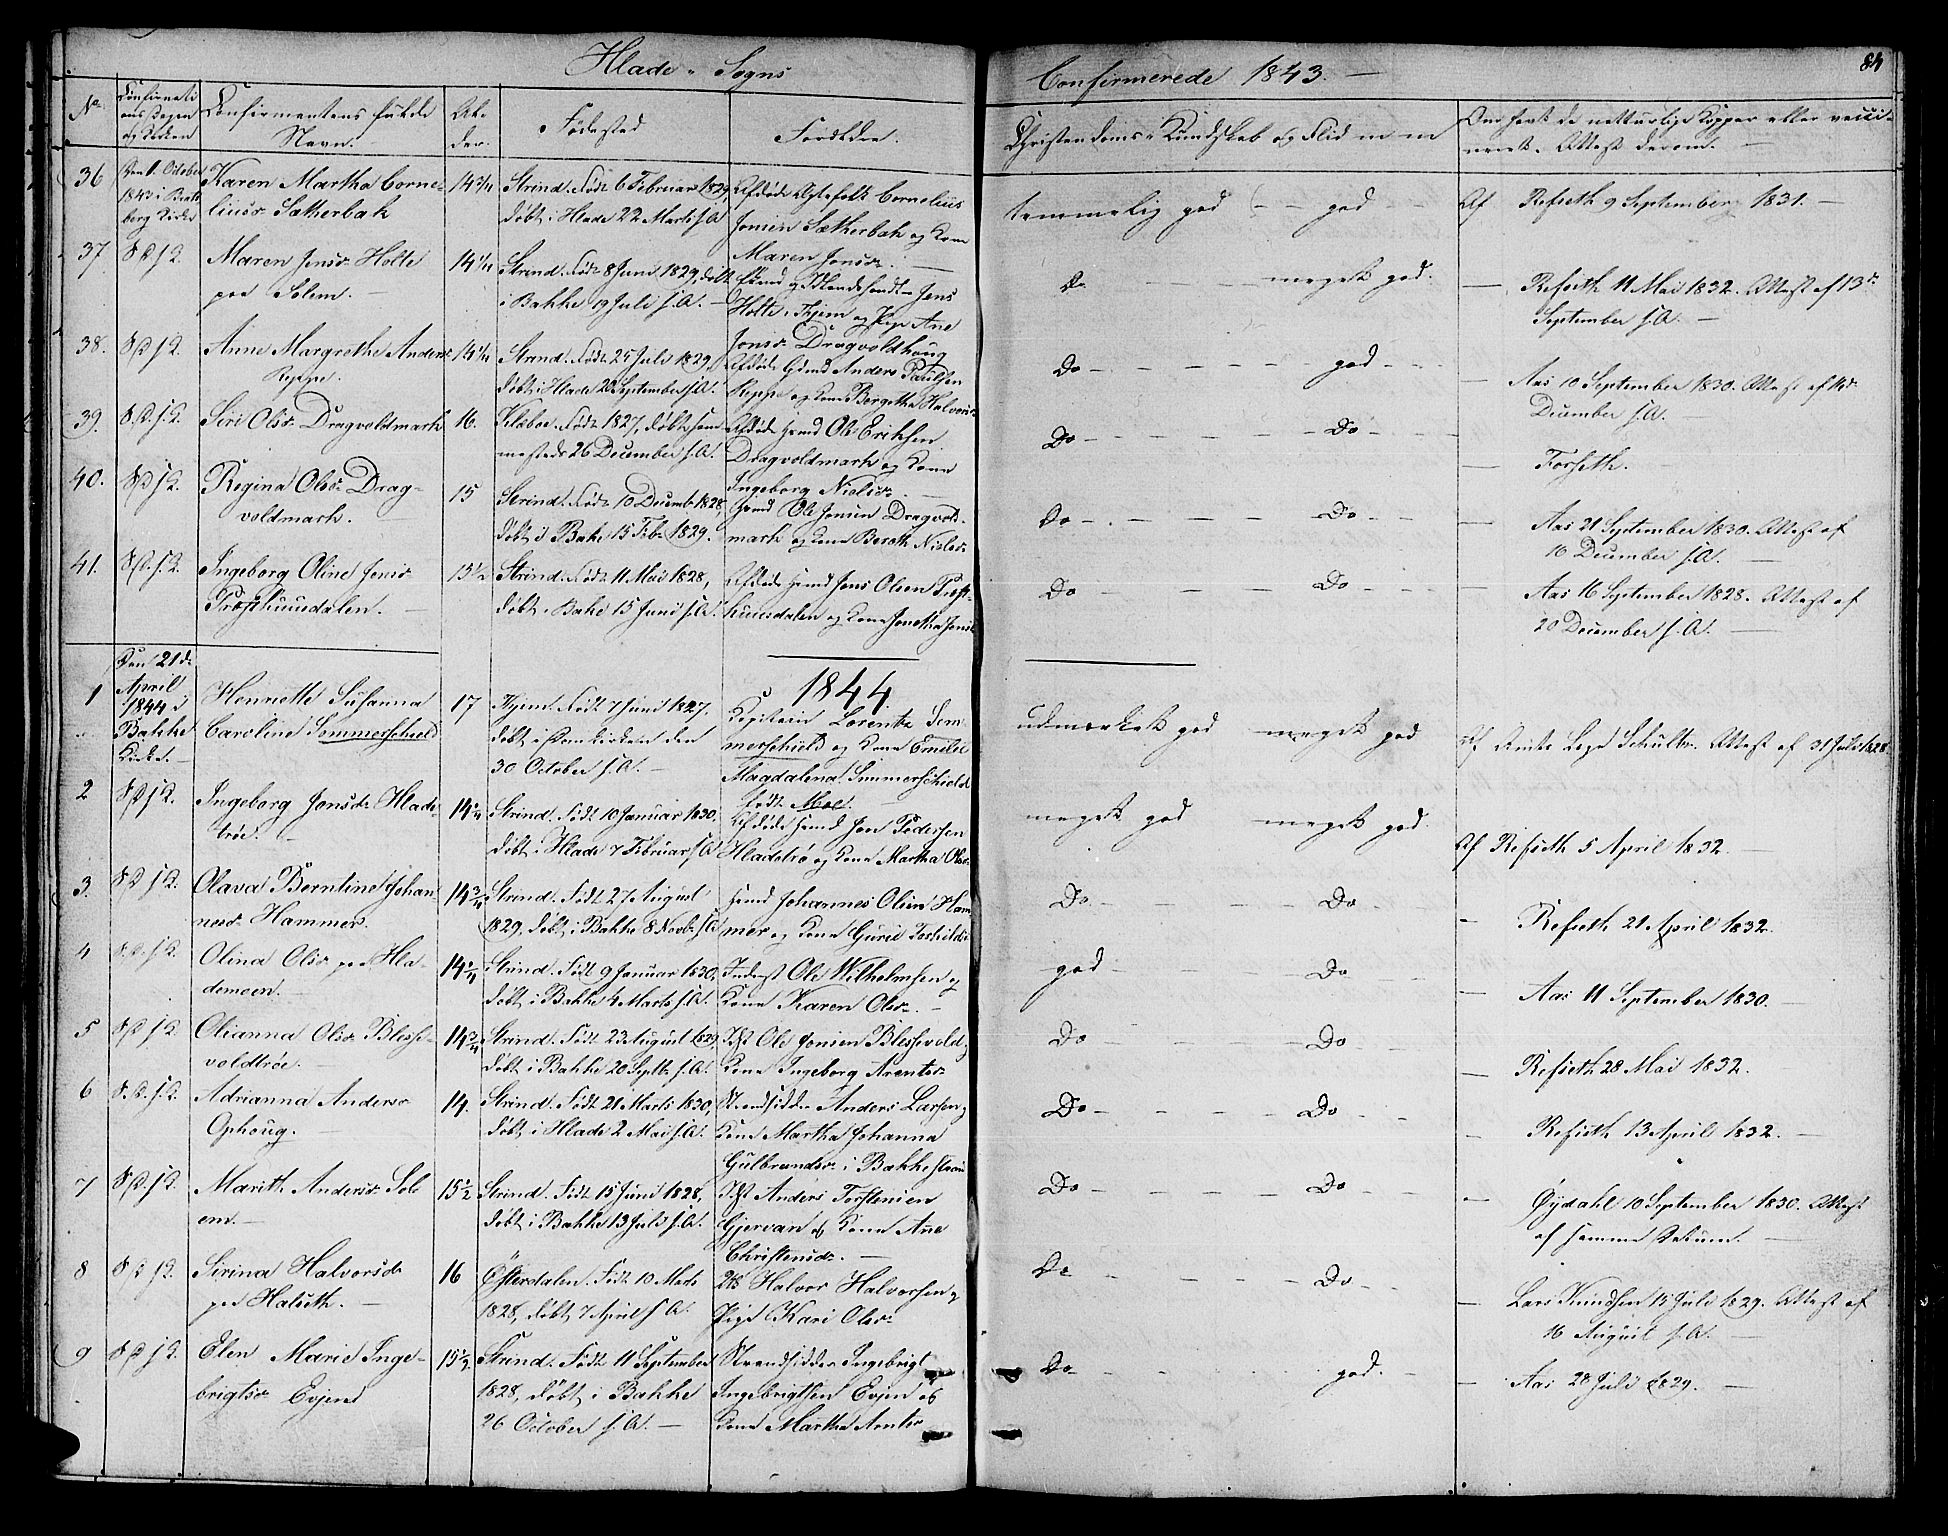 Hlade - Sogns
Confirmerede 1843. —
84
No
Confirmati
ons Dagen
og Kirken
Confirmentens fulde
Navn.
Al-
der.
Fødested
Forældre.
Christendoms-Kundskab og Flid m m
Om havt de naturlige Kopper eller vacci-
neret. Attest derom. —
36
Den 1. October
1843 i
Kirke
Karen Martha Corne-
liusdr Sætherbak
14 3/4
Strind. Født 6 Februar 1829,
døbt i Hlade 22 Marts s.A.
Afdøde Cornelius
Jonsen Sætherbak og Kone
Maren Jonsdr. —
temmelig god — — god — —
Af Refseth 9 September 1831. —
37.
Maren Jonsdr Holte
paa Solem.
14 1/4
Strind. Født 8 Juni 1829, døbt
i Bakke 19 Juli s.A. —
Jens
Holte i Thjem og Pige Ane
Jonsdr Dragvoldhoug
Do — — — meget god.
— Refseth 11 Mai 1832. Attest af 13de
September s.A. —
38.
Anne Margrethe Andersdr
Reppe.
14 1/4
Strind. Født 25 Juli 1829,
døbt i Hlade 20 September s.A.
Afdøde Gmd Anders Paulsen
Reppe og Kone Bergitha Halvorsdr
Do — — — god — —
— Aas 10 September 1830. Attest af
December s.A. —
39.
Siri Olsdr Dragvoldmark
16.
Klæboe. Født 1827, døbt sam-
mesteds 26 December s.A.
Afdøde Hmd Ole Eriksen
Dragvoldmark og Kone
Ingeborg Nielsdr. —
Do — — — Do — —
— Forseth. —
40.
Regina Olsdr Drag-
voldmark.
15
Strind. Født 10 Decemb. 1828,
døbt i Bake 15 Feb. 1829.
Hmd Ole Jonsen Dragvold-
mark og Kone Bereth Nielsdr
Do — — — Do —
— Aas 21 September 1830. Attest af
10 December s.A. —
41.
Ingeborg Oline Jonsdr
Præsthuusdalen. —
15 1/2
Strind. Født 11 Mai 1828,
døbt i Bake 15 Juni s.A.
Afdøde Hmd Jens Olsen Præst-
huusdalen og Kone Jonetha Jonsdr
Do — — — Do — —
— Aas 16 September 1828. Attest af
20 December s.A. —
1844
1
Den 21de
April
1844 i
Bakke
Kirke. —
Henriette Susanna
Caroline Sommerschield
17
Thjem. Født 7 Juni 1827.
døbt i Domkirken den
30 October s.A. —
Kapitain Lorentz Som-
merschield og Kone Emilie
Magdalena Sommerschield
født Moe. —
udmærket god meget god
Af Amts Læge Schultz. Attest af 31 Juli 1828.
2
Ingeborg Jonsdr Hlade-
trøe. —
14 1/4
Strind. Født 10 Januar 1830.
døbt i Hlade 7 Februar s.A.
Afdøde Hmd Jon Pedersen
Hladetrø og Kone Martha Olsdr
meget god meget god.
Af Refseth 5 April 1832. —
3.
Olava Berntine Johan-
nesdr Hammer.
14 3/4
Strind. Født 27 August
1829, døbt i Bakke 8 Novb. s.A.
Hmd Johannes Olsen Ham-
mer og Kone Gurie
Do — — — Do —
— Refseth 21 April 1832.
4
Olina Olsdr paa Hla-
demoen. —
14 1/4
Strind. Født 9 Januar 1830,
døbt i Bakke 4 Marts s.A.
Inderst Ole Wilhelmsen og
Kone Karen Olsdr. —
god — — — Do —
— Aas 11 September 1830. —
5
Olianna Olsdr Blesse-
voldtrøe. —
14 3/4
Strind. Født 23 August 1829,
døbt i Bakke 20 Septb. s.A.
Ole Jonsen Blessevold og
Kone Ingeborg Arentsdr
Do — — — Do —
— Refseth 28 Mai 1832. —
6
Adrianna Andersdr
Ophoug. —
14.
Strind. Født 21 Marts 1830,
døbt i Hlade 2 Mai s.A.
Strandsidder Anders Larsen og
Kone Martha Johanna
Gulbrandsdr i Bakke
Do — — — Do —
— Refseth 13 April 1832. —
7
Marith Andersdr Sol-
em. —
15 1/2
Strind. Født 15 Juni 1828,
døbt i Bakke 13 Juli s.A.
Anders Torstensen
Gjervan og Kone Ane
Christensdr. —
Do — — — Do — —
— Øydahl 10 September 1830. Attest
af samme Datum. —
8
Sirina Halvorsdr
paa Halseth. —
16
Østerdalen. Født 10 Marts
1828, døbt 7 April s.A.
Halvor Halvorsen og
Pige Kari Olsdr
Do — — — Do —
— Lars Knudsen 15 Juli 1829. Attest af
16 August s.A. —
9
Elen Marie Inge-
brigtsdr Evjen
15 1/2
Strind. Født 11 September
1828, døbt i Bakke
26 October s.A. —
Strandsidder Ingebrigt
Ingebrigtsen Evjen og
Kone Martha Arntsdr
Do — — — god. —
— Aas 28 Juli 1829. —